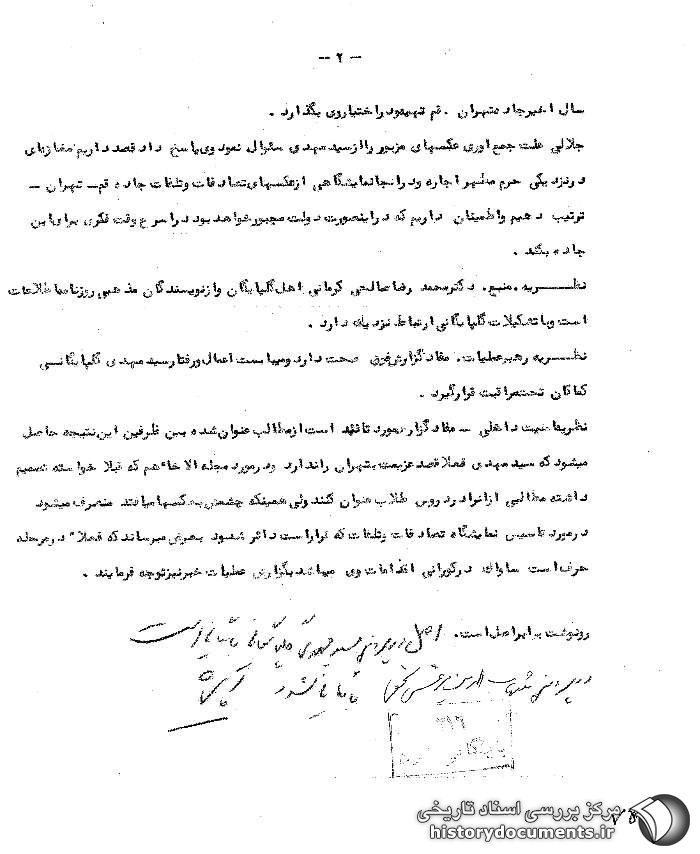 -- ۲ --
سال اخیر جاده تهران - قم تهیه نموده را ختیار وی بگذارد .
جلالی علت جمع اوری عکسهای مزبور را از سید مهدی سئوال نمود وی پاسخ داد قصد داریم مغازه‌ای
در نزدیکی حرم مطهر اجاره ودر انجا نمایشگاهی از عکسهای تصادفات وتلفات جاده قم - تهران -
ترتیب دهیم واطمینان داریم که دراینصورت دولت مجبور خواهد بود در اسرع وقت فکری برای این
جاده بکند .
نظـــریه . منبع . دکتر محمد رضا صالحی کرمانی اهل گلپایگان واز نویسندگان مذهبی روزنامه اطلاعات
است وبا تشکیلات گلپایگانی ارتباط نزدیک دارد .
نظـــریه رهبر عملیات . مفاد گزارش فوق صحت دارد ومیبایست اعمال ورفتار سید مهدی گلپایگانـــی
کماکان تحت مراقبت قرار گیرد .
نظریه امنیت داخلی - مفاد گزارش مورد تائید است از مطالب عنوان شده بین طرفین این نتیجه حاصل
میشود که سید مهدی فعلا قصد عزیمت بتهران را ندارد ودر مورد مجله الاخاء هم که قبلا خواسته تصمیم
داشته مطالبی از انرا در دروس طلاب عنوان کند ولی همینکه چشمش به عکسها میافتد منصرف میشود
در مورد تاسیس نمایشگاه تصادفات وتلفات که قرار است دائر شود بعرض میرساند که فعلا در مرحله
حرف است ساواک در کوران اقدامات وی میباشد بگزارش عملیات خبر نیز توجه فرمایند .
رونوشت برابر اصل است .
اصل در پرونده سید مهدی گلپایگانی بایگانی است
در پرونده شهاب الدین مرعشی نجفی بایگانی شود
۳۱۶
بایگانی
۷۵
مرکز بررسی اسناد تاریخی
historydocuments.ir